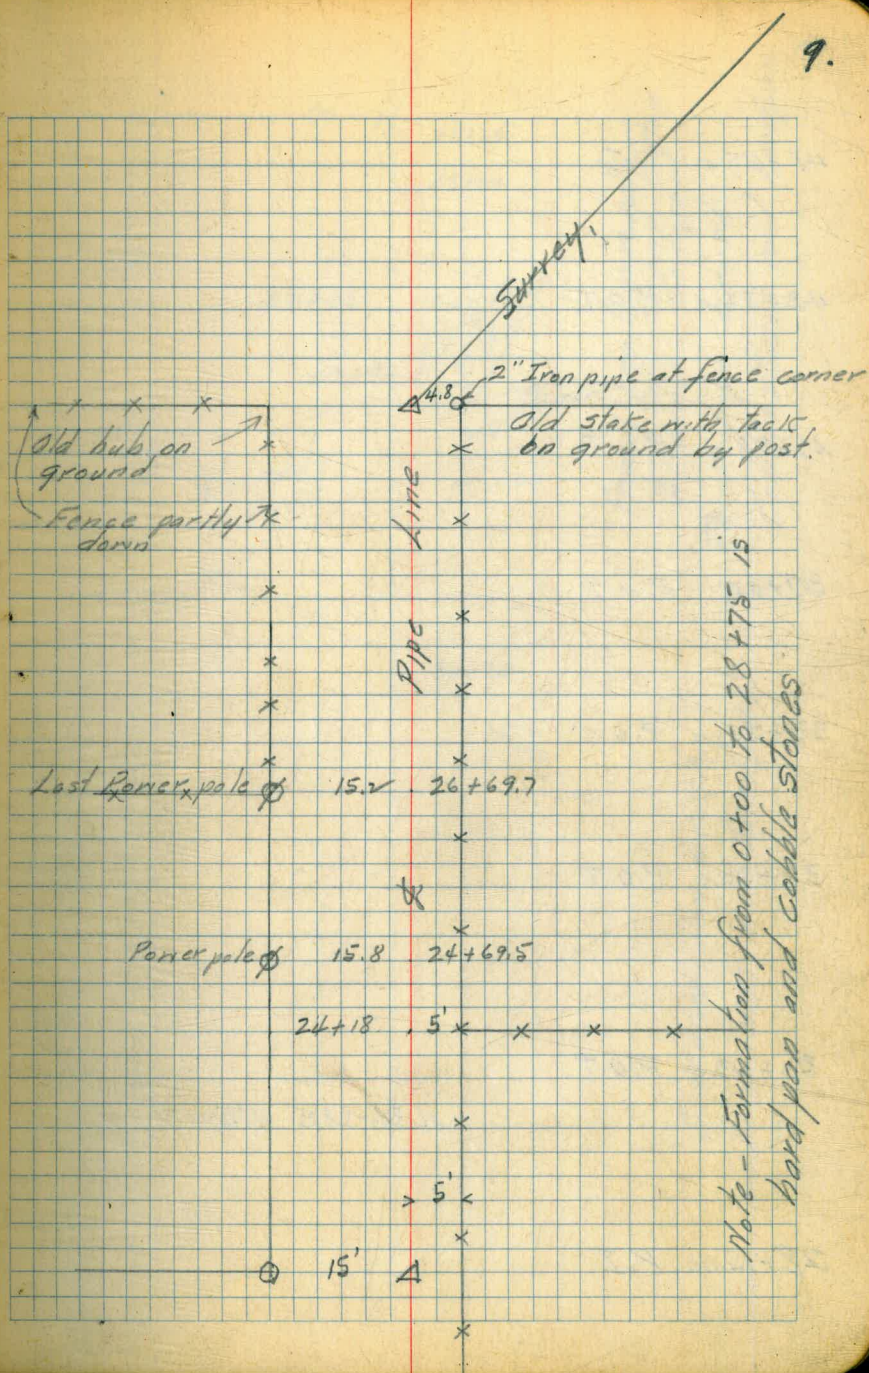 9.
Survey,
2" Iron pipe at fence corner
4.8
Old stake with tack
on ground by post.
Old hub on
ground
Fence partly
down
Pipe Line
Last Power pole 15.2 26+69.7
Power pole 15.8 24+69.5
24+18 5'
5'
15'
Note - Formation from 0+00 to 28+75 is
hard pan and cobble stones